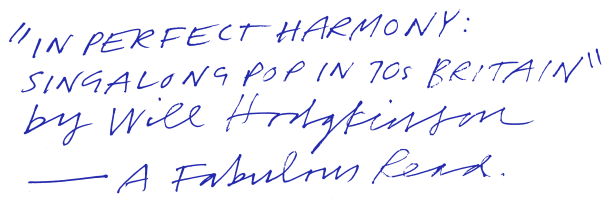 "IN PERFECT HARMONY:
SINGALONG POP IN 70s BRITAIN"
by Will Hodgkinson
— A Fabulous Read.